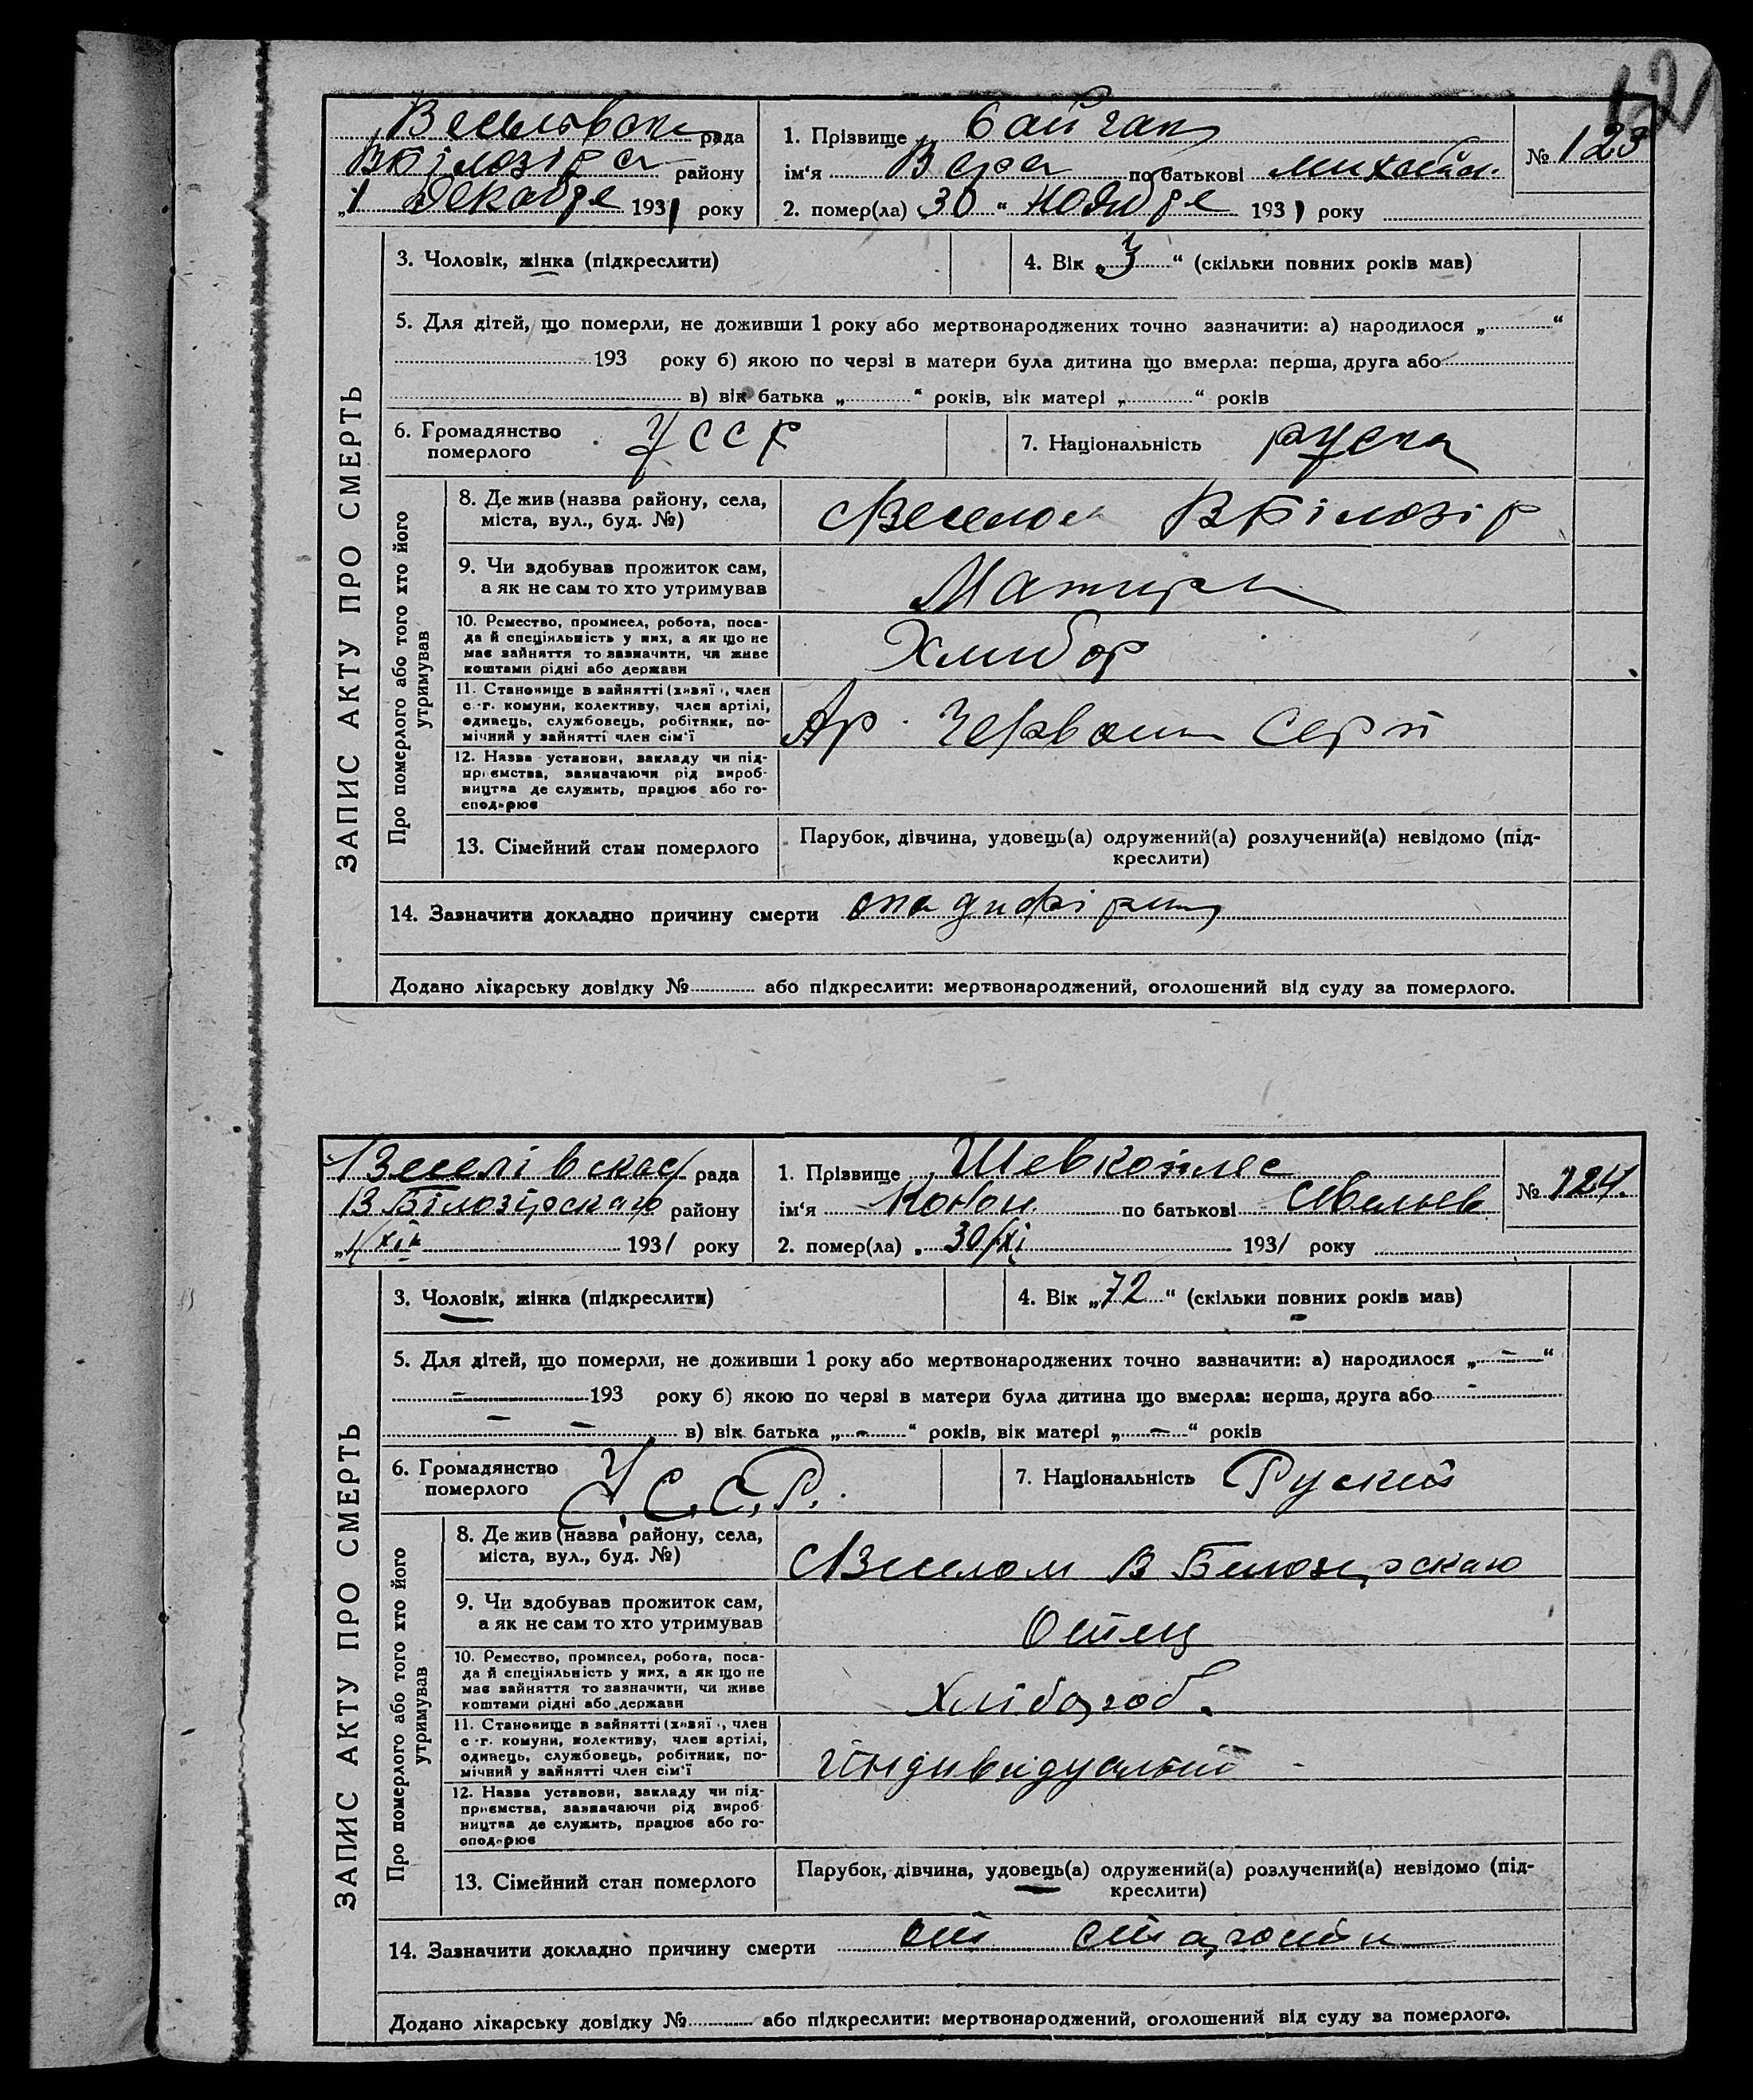 121
Веселовск рада
В Білозірс району
„1 Декабре 1931 року
1. Прізвище Сайгак
ім'я Вера по батькові Михайл.
№ 123
2. помер(ла) „30“ Ноябре 1931 року
ЗАПИС АКТУ ПРО СМЕРТЬ
3. Чоловік, жінка (підкреслити)
4. Вік „3“ (скільки повних років мав)
5. Для дітей, що померли, не доживши 1 року або мертвонароджених точно зазначити: а) народилося „ “
193 року б) якою по черзі в матери була дитина що вмерла: перша, друга або
в) вік батька „ “ років, вік матері „ “ років
6. Громадянство
померлого
УССР
7. Національність руска
Про померлого або того хто його
утримував
8. Де жив (назва району, села,
міста, вул., буд. №)
с Веселое В Білозір
9. Чи здобував прожиток сам,
а як не сам то хто утримував
10. Ремество, промисел, робота, поса-
да й спеціяльність у них, а як що не
має зайняття то зазначити, чи живе
коштами рідні або держави
Хлибор
11. Становище в зайнятті (хазяї., член
с.-г. комуни, колективу, член артілі,
одинець, службовець, робітник, по-
мічний у зайнятті член сім'ї
Ар. Червони Серп
12. Назва установи, закладу чи під-
приємства, зазначаючи рід вироб-
ництва де служить, працює або го-
сподарює
13. Сімейний стан померлого
Парубок, дівчина, удовець(а) одружений(а) розлучений(а) невідомо (під-
креслити)
14. Зазначити докладно причину смерти
Додано лікарську довідку № або підкреслити: мертвонароджений, оголошений від суду за померлого.
Веселівская рада
В Білозірскаго району
„1/XII 1931 року
1. Прізвище Шевкопляс
ім'я Конон по батькові Савельев
№ 124.
2. помер(ла) „30/XI 1931 року
ЗАПИС АКТУ ПРО СМЕРТЬ
3. Чоловік, жінка (підкреслити)
4. Вік „72“ (скільки повних років мав)
5. Для дітей, що померли, не доживши 1 року або мертвонароджених точно зазначити: а) народилося „ – “
– 193 року б) якою по черзі в матери була дитина що вмерла: перша, друга або –
– – в) вік батька „ – “ років, вік матері „ – “ років
6. Громадянство
померлого
У.С.С.Р.
7. Національність Руский
Про померлого або того хто його
утримував
8. Де жив (назва району, села,
міста, вул., буд. №)
с Веселом В Билозирскаго
9. Чи здобував прожиток сам,
а як не сам то хто утримував
Отец
10. Ремество, промисел, робота, поса-
да й спеціяльність у них, а як що не
має зайняття то зазначити, чи живе
коштами рідні або держави
Хлібороб.
11. Становище в зайнятті (хазяї., член
с.-г. комуни, колективу, член артілі,
одинець, службовець, робітник, по-
мічний у зайнятті член сім'ї
Индивидуальний
12. Назва установи, закладу чи під-
приємства, зазначаючи рід вироб-
ництва де служить, працює або го-
сподарює
13. Сімейний стан померлого
Парубок, дівчина, удовець(а) одружений(а) розлучений(а) невідомо (під-
креслити)
14. Зазначити докладно причину смерти от старости
Додано лікарську довідку № або підкреслити: мертвонароджений, оголошений від суду за померлого.